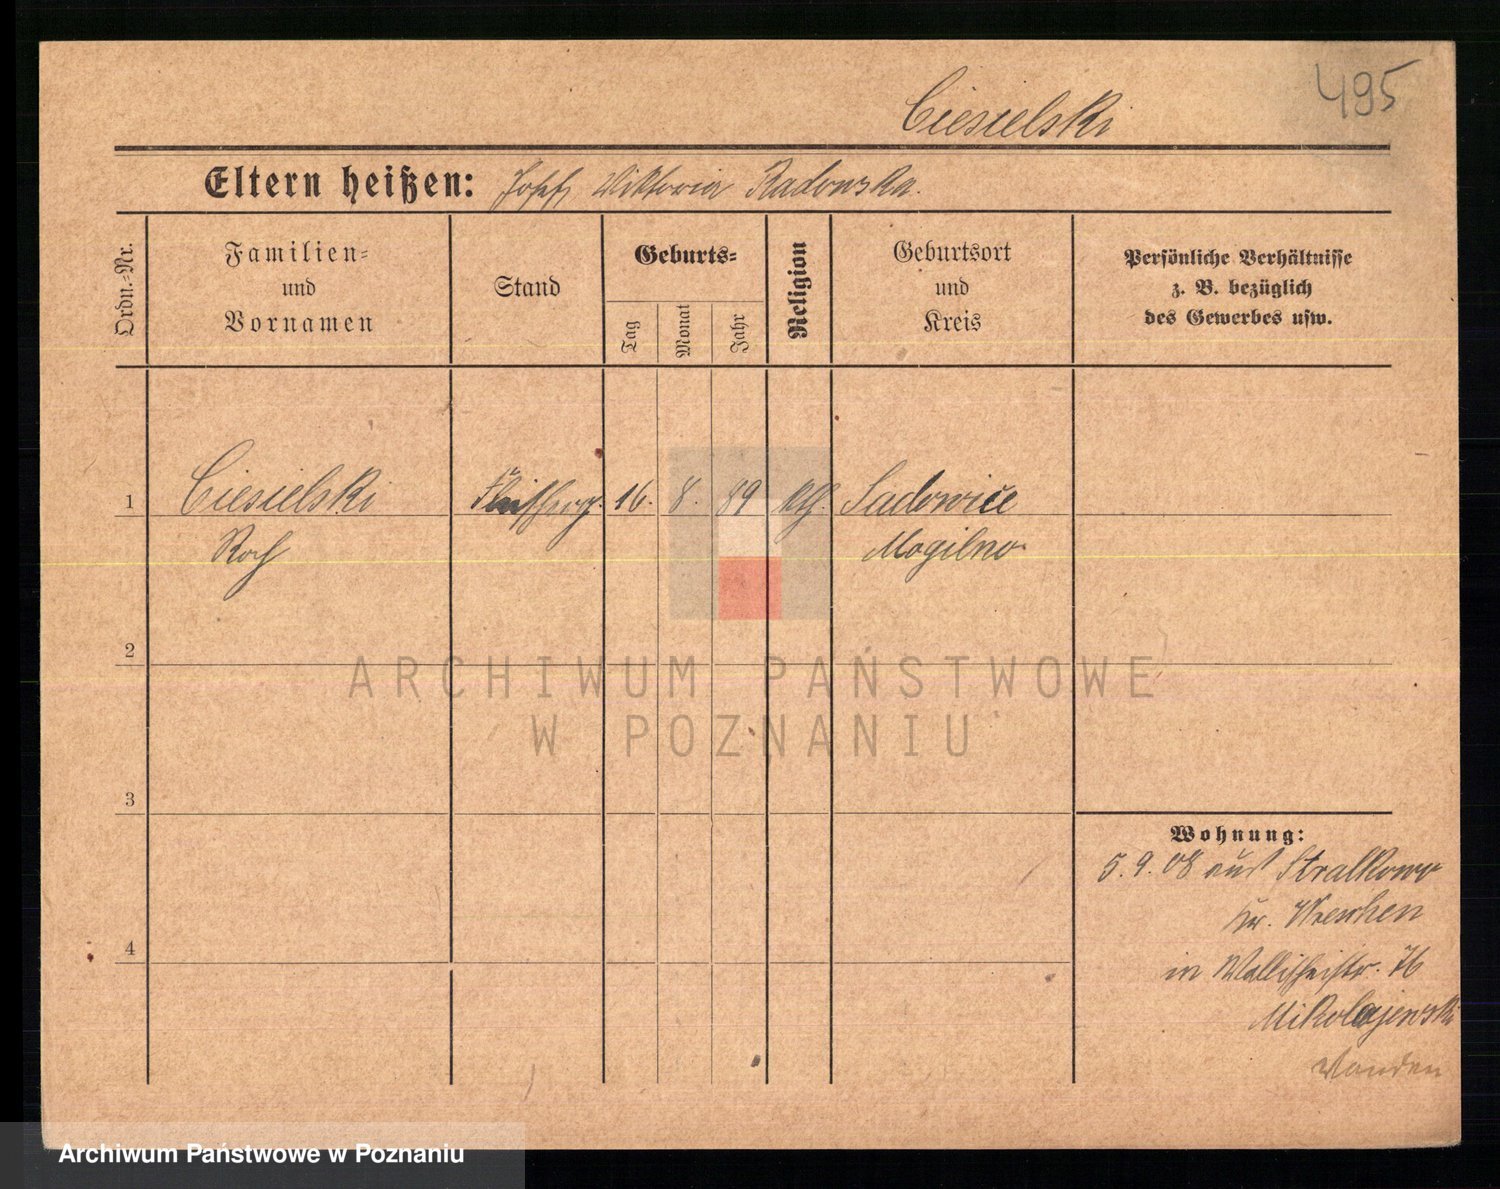 495
Ciesielski
Eltern heißen: Josef Wiktoria Radomska.
Ordn.-Nr.
Familien-
und
Vornamen
Stand
Geburts-
Tag
Monat
Jahr
Religion
Geburtsort
und
Kreis
Persönliche Verhältnisse
z. B. bezüglich
des Gewerbes usw.
1 Ciesielski 16. 8. 89 kth. Sadowice
Roch Mogilno
2
3
4
Wohnung:
5.9.08 aus Stralkowo
Kr. Wreschen
in Wallischeistr. 76
Mikolajewski
ARCHIWUM PAŃSTWOWE
W POZNANIU
Archiwum Państwowe w Poznaniu